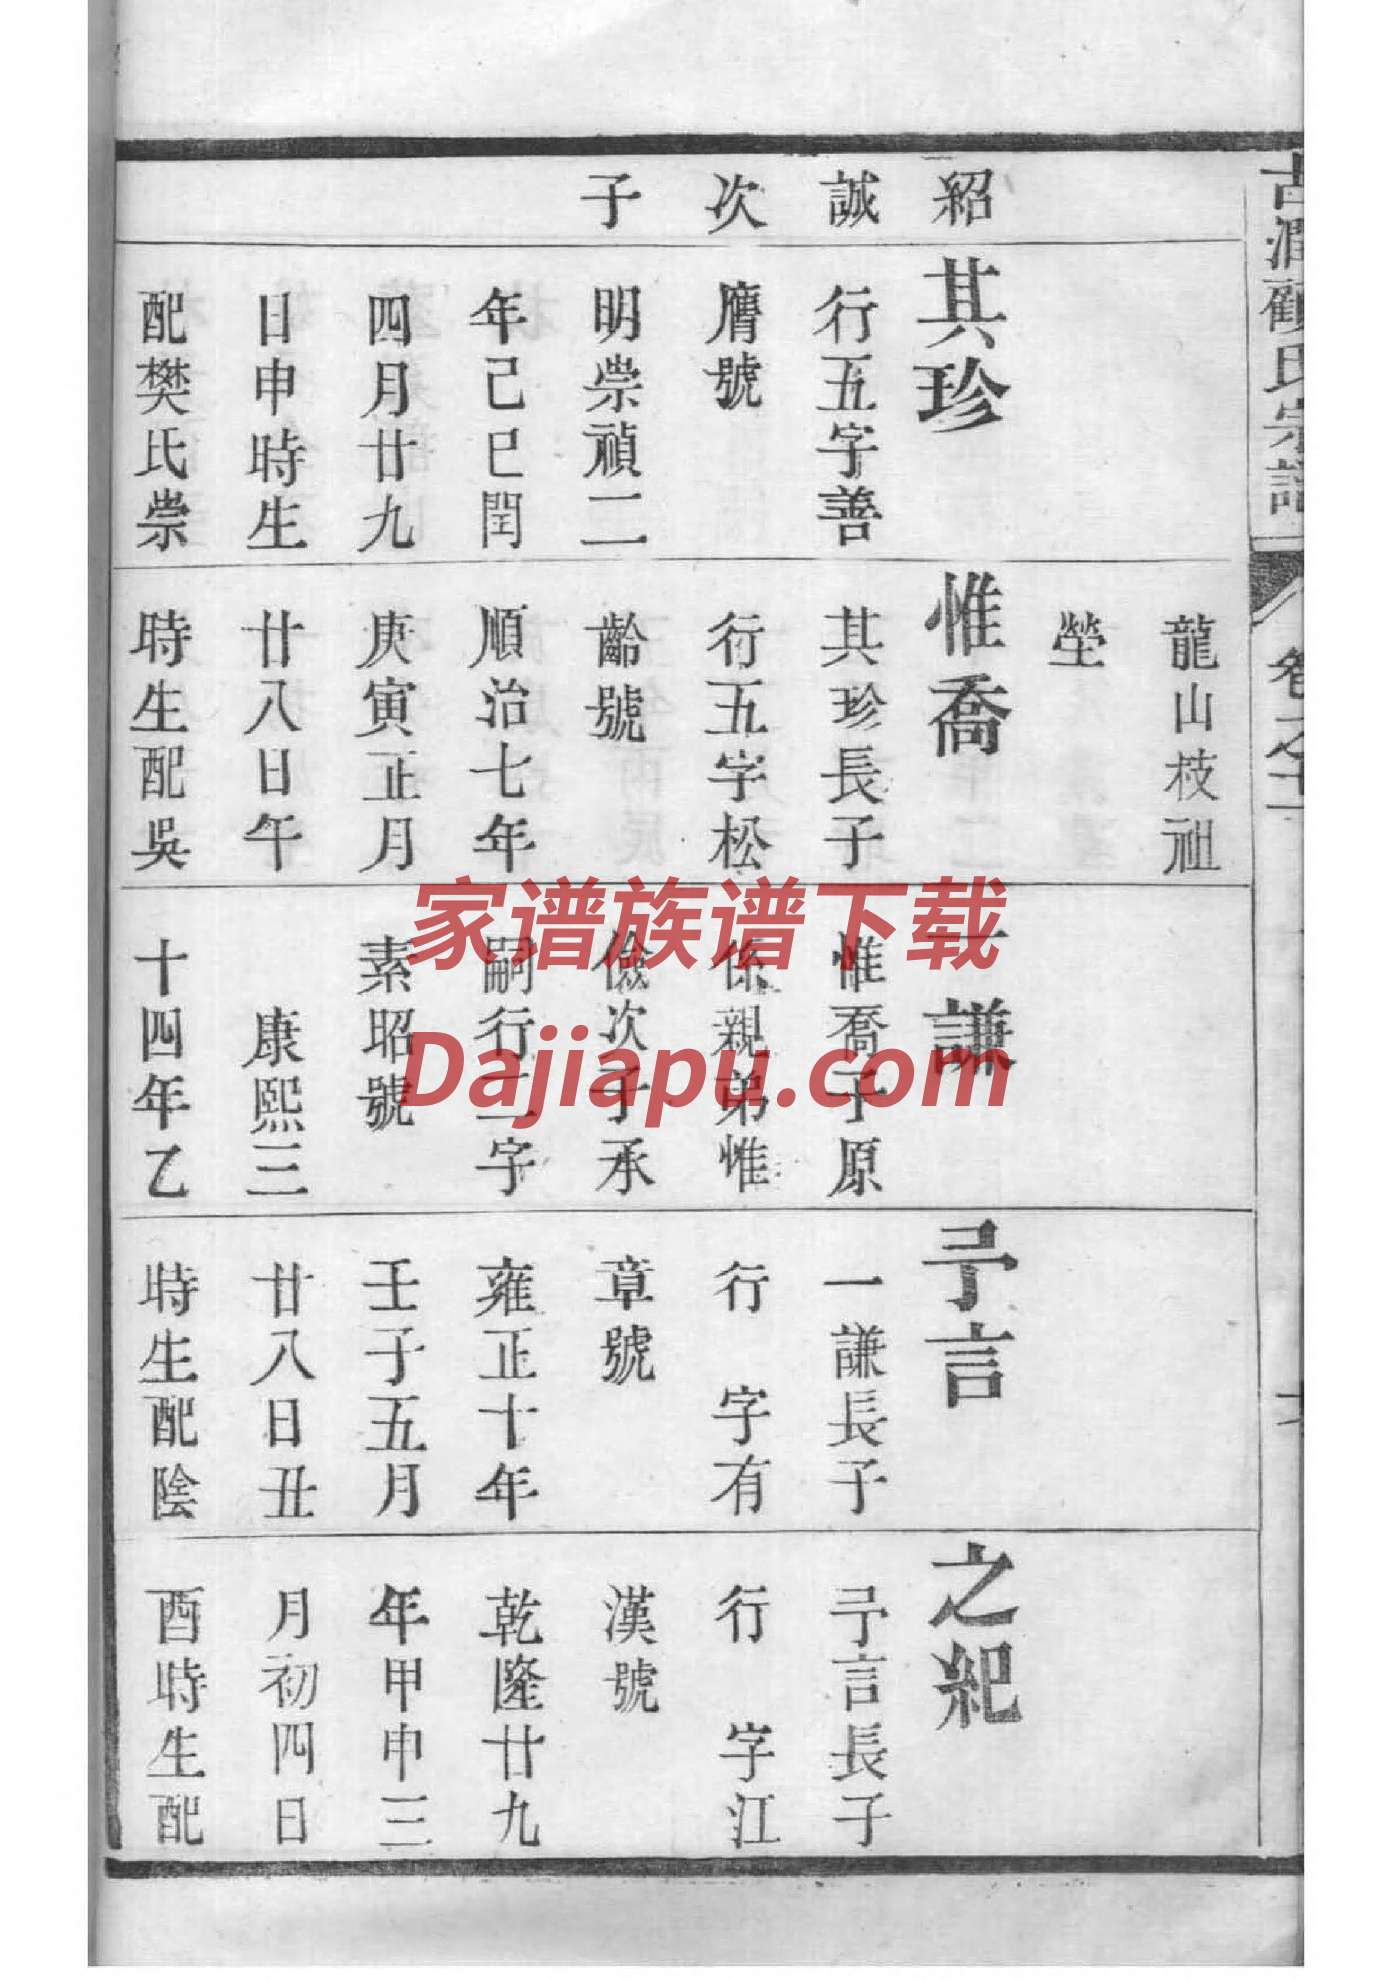 古潤顧氏宗譜
卷之十一
紹
誠
次
子
其珍
行五字善
膺號
明崇禎二
年己巳閏
四月廿九
日申時生
配樊氏崇
龍山枝祖
塋
惟喬
其珍長子
行五字松
齡號
順治七年
庚寅正月
廿八日午
時生配吳
一謙
惟喬子原
係親弟惟
儉次子承
嗣行二字
素昭號
康熙三
十四年乙
予言
一謙長子
行 字有
章號
雍正十年
壬子五月
廿八日丑
時生配陰
之紀
予言長子
行 字江
漢號
乾隆廿九
年甲申三
月初四日
酉時生配
家谱族谱下载
Dajiapu.com